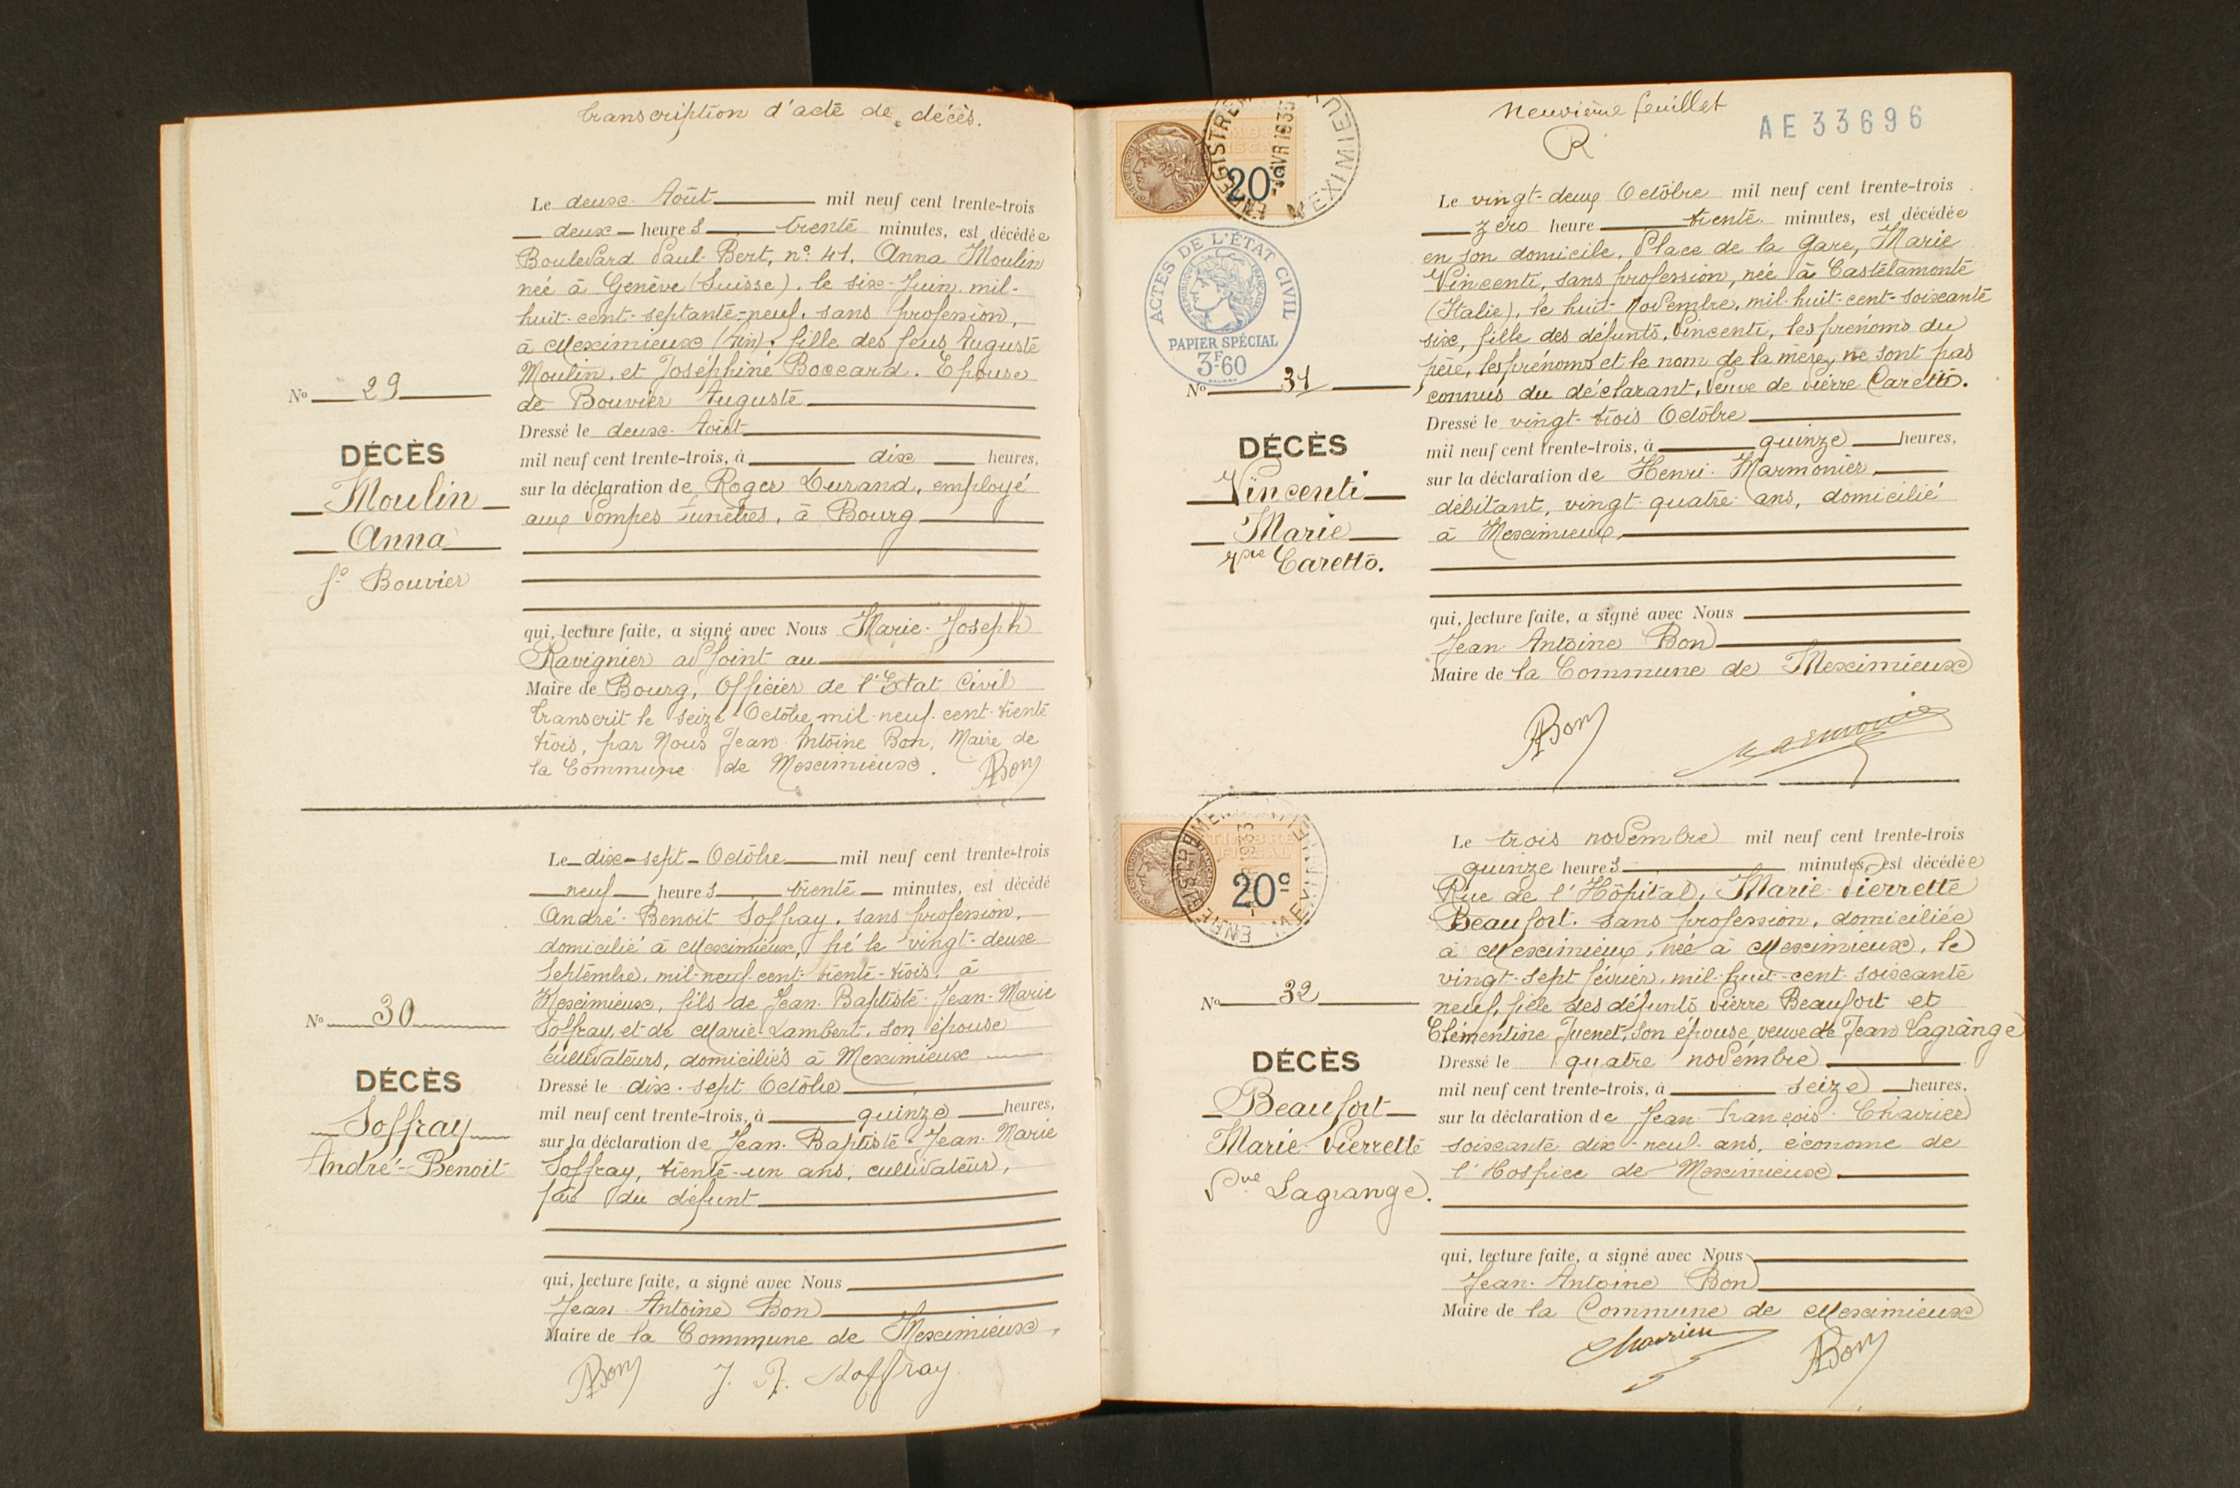 transcription d'acte de décès.
Le deux Août mil neuf cent trente-trois
deux heures trente minutes, est décédée
Boulevard Paul-Bert, n° 41, Anna Moulin
née à Genève (Suisse), le six Juin mil-
huit-cent-septante-neuf, sans profession,
à Meximieux (Ain), fille des feus Auguste
Moulin, et Joséphine Boccard. Epouse
de Bouvier Auguste
Dressé le deux Août
mil neuf cent trente-trois, à dix heures,
sur la déclaration de Roger Durand, employé
aux Pompes Funèbres, à Bourg
qui, lecture faite, a signé avec Nous Marie-Joseph
Ravignier adjoint au
Maire de Bourg, Officier de l'Etat Civil
transcrit le seize Octobre mil-neuf-cent-trente
trois, par Nous Jean-Antoine Bon, Maire de
la Commune de Meximieux. ABon
No 29
DÉCÈS
Moulin
Anna
fe Bouvier
Le dix-sept Octobre mil neuf cent trente-trois
neuf heures trente minutes, est décédé
André-Benoit Soffray, sans profession,
domicilié à Meximieux, né le vingt-deux
Septembre, mil-neuf-cent-trente-trois, à
Meximieux, fils de Jean-Baptiste-Jean-Marie
Soffray et de Marie Lambert, son épouse
cultivateurs, domiciliés à Meximieux
Dressé le dix-sept Octobre
mil neuf cent trente-trois, à quinze heures,
sur la déclaration de Jean-Baptiste-Jean-Marie
Soffray, trente-un ans, cultivateur,
père du défunt
qui, lecture faite, a signé avec Nous
Jean-Antoine Bon
Maire de la Commune de Meximieux,
ABon J. B. Soffray
No 30
DÉCÈS
Soffray
André-Benoit
neuvième feuillet
R
AE33696
20c
ENREGISTREMENT
MEXIMIEUX
ACTES DE L'ÉTAT CIVIL
PAPIER SPÉCIAL
3F60
Le vingt-deux Octobre mil neuf cent trente-trois
zéro heure trente minutes, est décédée
en son domicile, Place de la Gare, Marie
Vincenti, sans profession, née à Castelamonte
(Italie), le huit-Novembre, mil-huit-cent-soixante
six, fille des défunts, Vincenti, les prénoms du
père, les prénoms et le nom de la mère, ne sont pas
connus du déclarant, Veuve de Pierre Caretto.
Dressé le vingt-trois Octobre
mil neuf cent trente-trois, à quinze heures,
sur la déclaration de Henri Marmonier
débitant, vingt-quatre ans, domicilié
à Meximieux
qui, lecture faite, a signé avec Nous
Jean-Antoine Bon
Maire de la Commune de Meximieux
ABon Marmonier
No 31
DÉCÈS
Vincenti
Marie
Vve Caretto.
20c
Le trois novembre mil neuf cent trente-trois
quinze heures minutes, est décédée
Rue de l'Hôpital, Marie-Pierrette
Beaufort, sans profession, domiciliée
à Meximieux, née à Meximieux, le
vingt-sept février, mil-huit-cent-soixante
neuf, fille des défunts Pierre Beaufort et
Clémentine Juenet, son épouse, veuve de Jean Lagrange
Dressé le quatre novembre
mil neuf cent trente-trois, à seize heures,
sur la déclaration de Jean-François Charrier
soixante dix-neuf ans, économe de
l'Hospice de Meximieux
qui, lecture faite, a signé avec Nous
Jean-Antoine Bon
Maire de la Commune de Meximieux
Charrier ABon
No 32
DÉCÈS
Beaufort
Marie-Pierrette
Vve Lagrange.